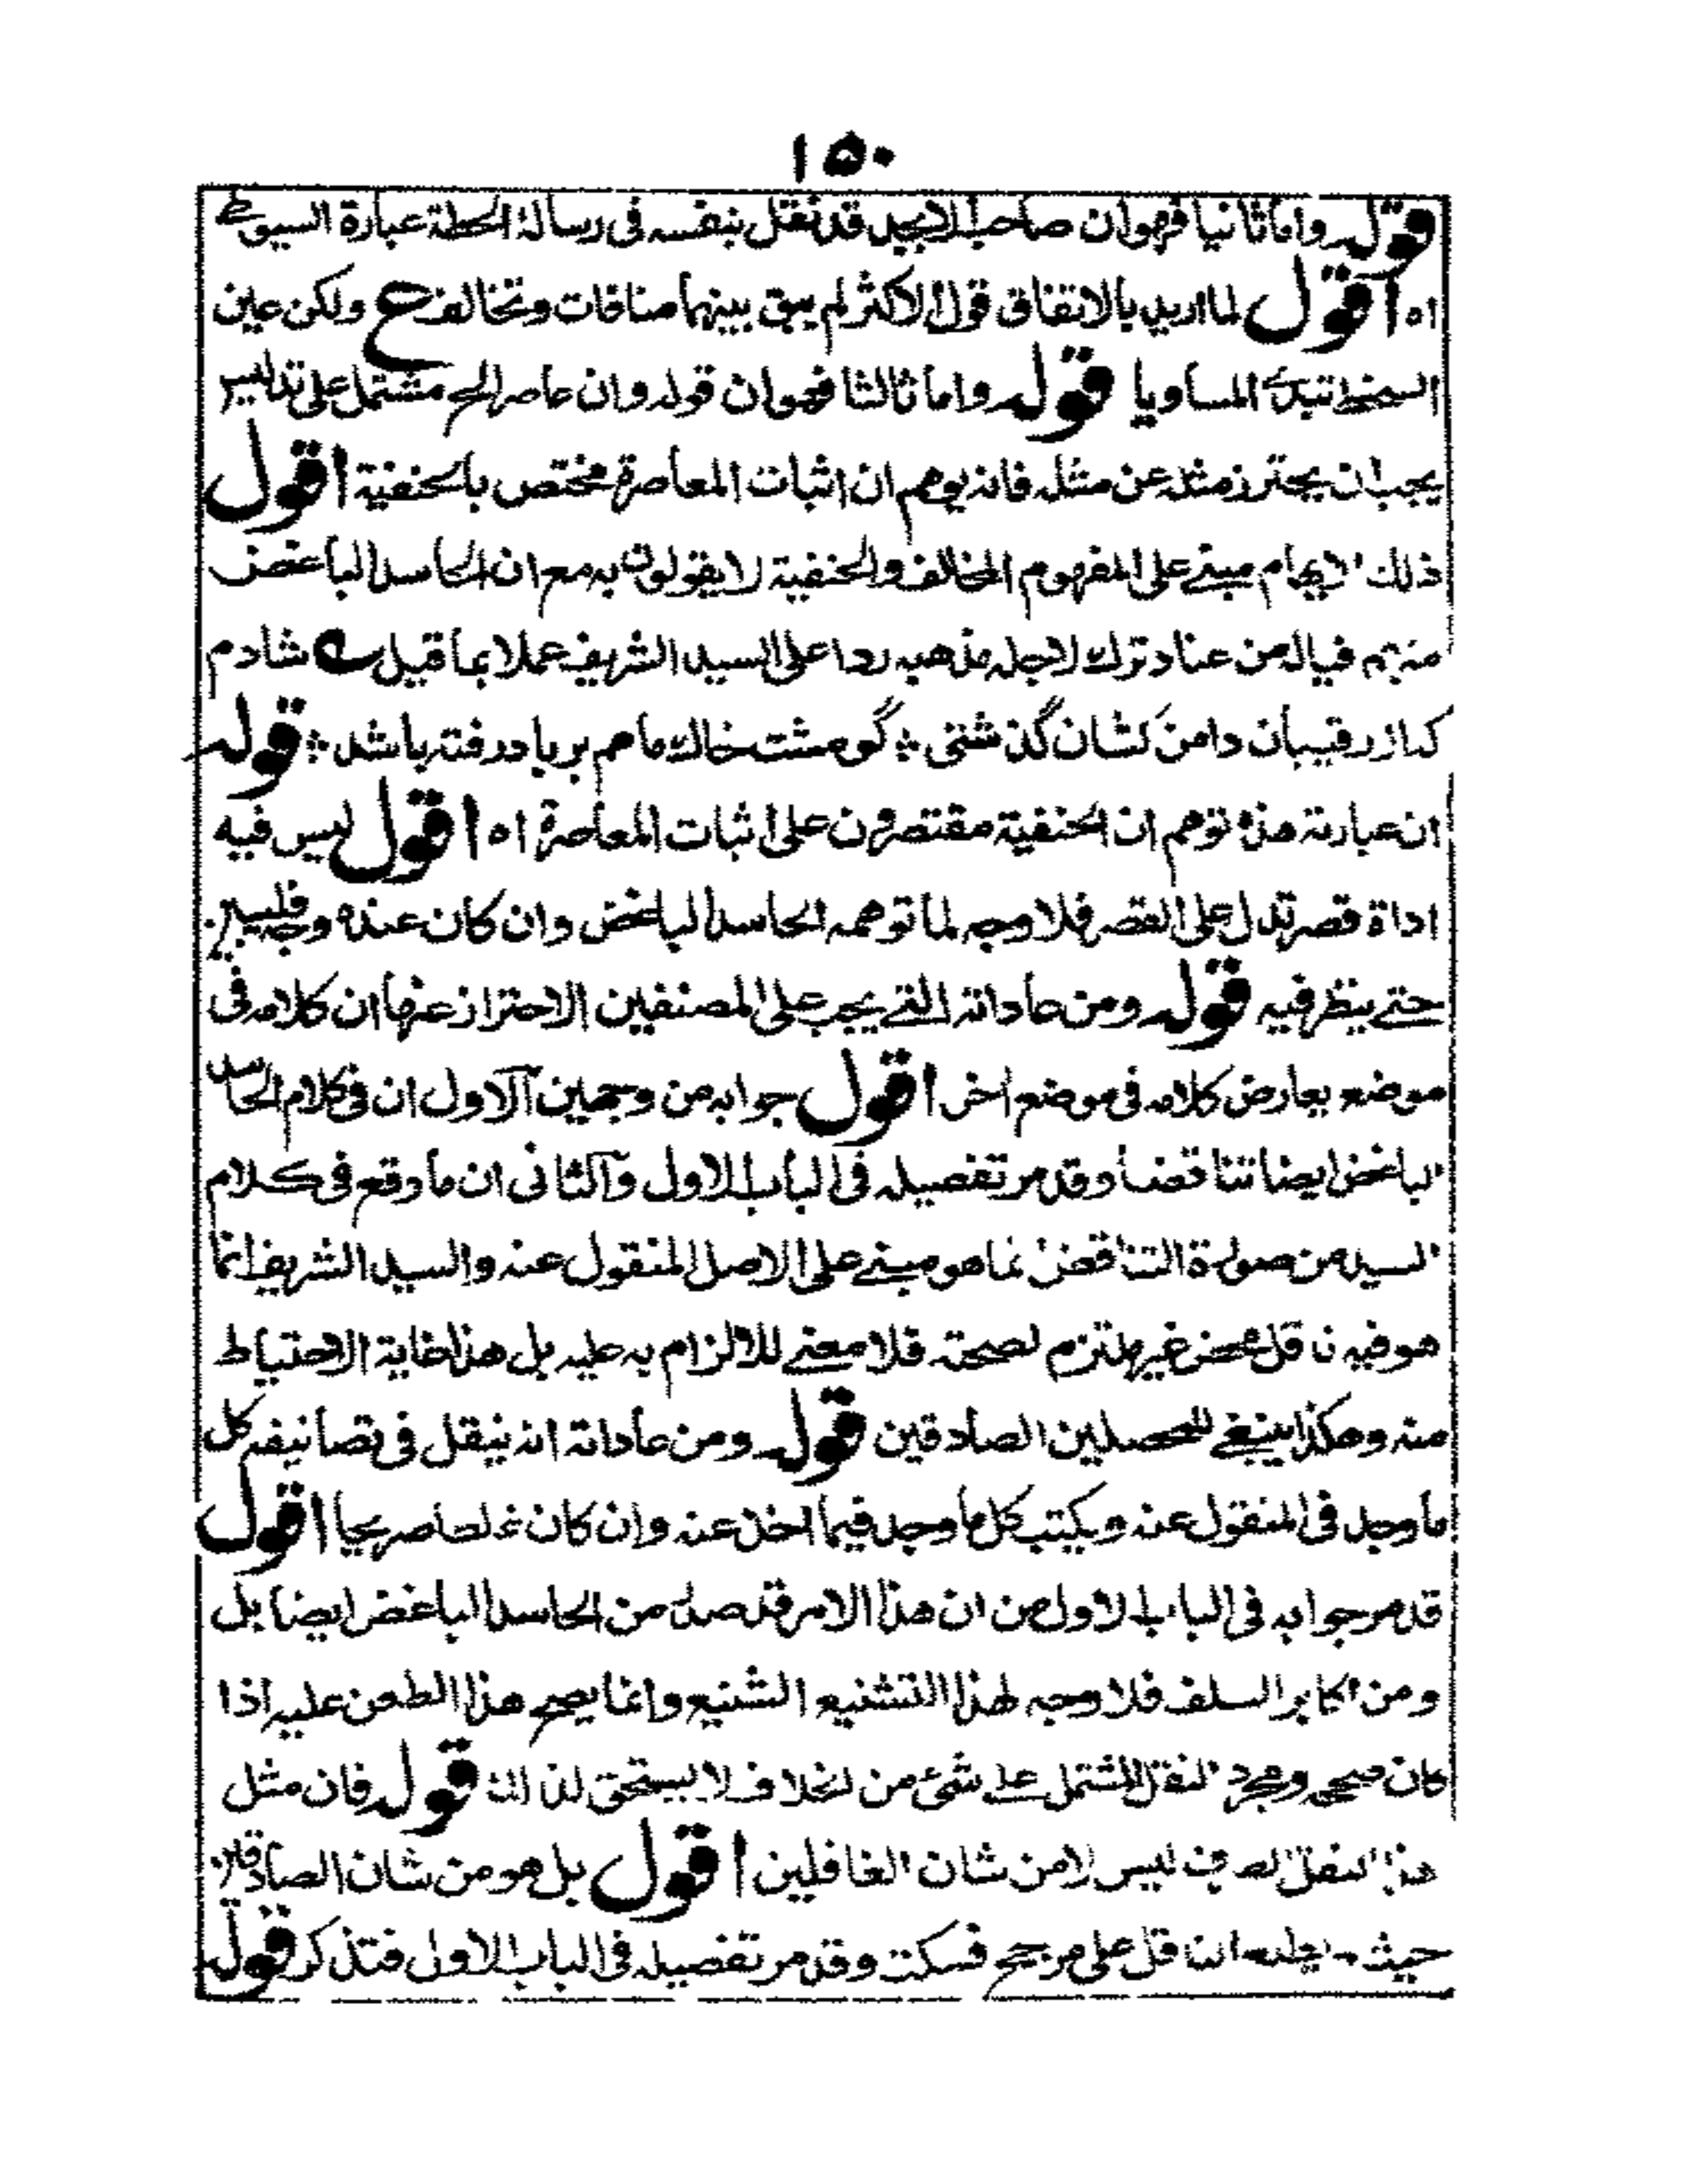 ١٥٠
قوله واما ثانيا فهو ان صاحب الابجد قد نقل بنفسه فى رسالة الحطة عبارة السيوطى
اه اقول لما اريد بالاتفاق قول الاكثر لم يبق بينهما منافات وتخالف ع ولكن عين
السخط تبدى المساويا قوله واما ثالثا فهو ان قوله وان عاصر الخ مشتمل على تدليس
يجب ان يحترز مثله عن مثله فانه يوهم ان اثبات المعاصرة مختص بالحنفية اقول
ذلك الايهام مبنى على المفهوم المخالف والحنفية لا يقولون به مع ان الحاسد الباغض
منهم فياله من عناد ترك لاجله مذهبه ردا على السيد الشريف عملا بما قيل ے شادم
كه از رقيبان دامن كشان گذشتى ؞ گو مشت خاك ما هم برباد رفته باشد ؞ قوله
ان عبارته هذه توهم ان الحنفية مقتصرون على اثبات المعاصرة اه اقول ليس فيه
اداة قصر تدل على القصر فلا وجه لما توهمه الحاسد الباغض وان كان عنده وجه فليبين
حتى ينظر فيه قوله ومن عاداته التى يجب على المصنفين الاحتراز عنها ان كلامه فى
موضع يعارض كلامه فى موضع اخر اقول جوابه من وجهين الاول ان فى كلام الحاسد
الباغض ايضا تناقضا وقد مر تفصيله فى الباب الاول والثانى ان ما وقع فى كلام
السيد من صورة التناقض انما هو مبنى على الاصل المنقول عنه والسيد الشريف انما
هو فيه ناقل محض غير ملتزم لصحته فلا معنى للالزام به عليه بل هذا غاية الاحتياط
منه وهكذا ينبغى للمحصلين الصادقين قوله ومن عاداته انه ينقل فى تصانيفه كل
ما وجد فى المنقول عنه ويكتب كل ما وجد فيما اخذ عنه وان كان غلطا صريحا اقول
قد مر جوابه فى الباب الاول من ان هذا الامر قد صدر من الحاسد الباغض ايضا بل
ومن اكابر السلف فلا وجه لهذا التشنيع الشنيع وانما يصح هذا الطعن عليه اذا
كان ومجرد النقل المشتمل على شئ من الخلاف لا يستحق لذلك قوله فان مثل
هذا النقل الصرف ليس الا من شان الغافلين اقول بل هو من شان الصادقين
حيث الناقل على مرجح فسكت وقد مر تفصيله فى الباب الاول فتذكر قوله